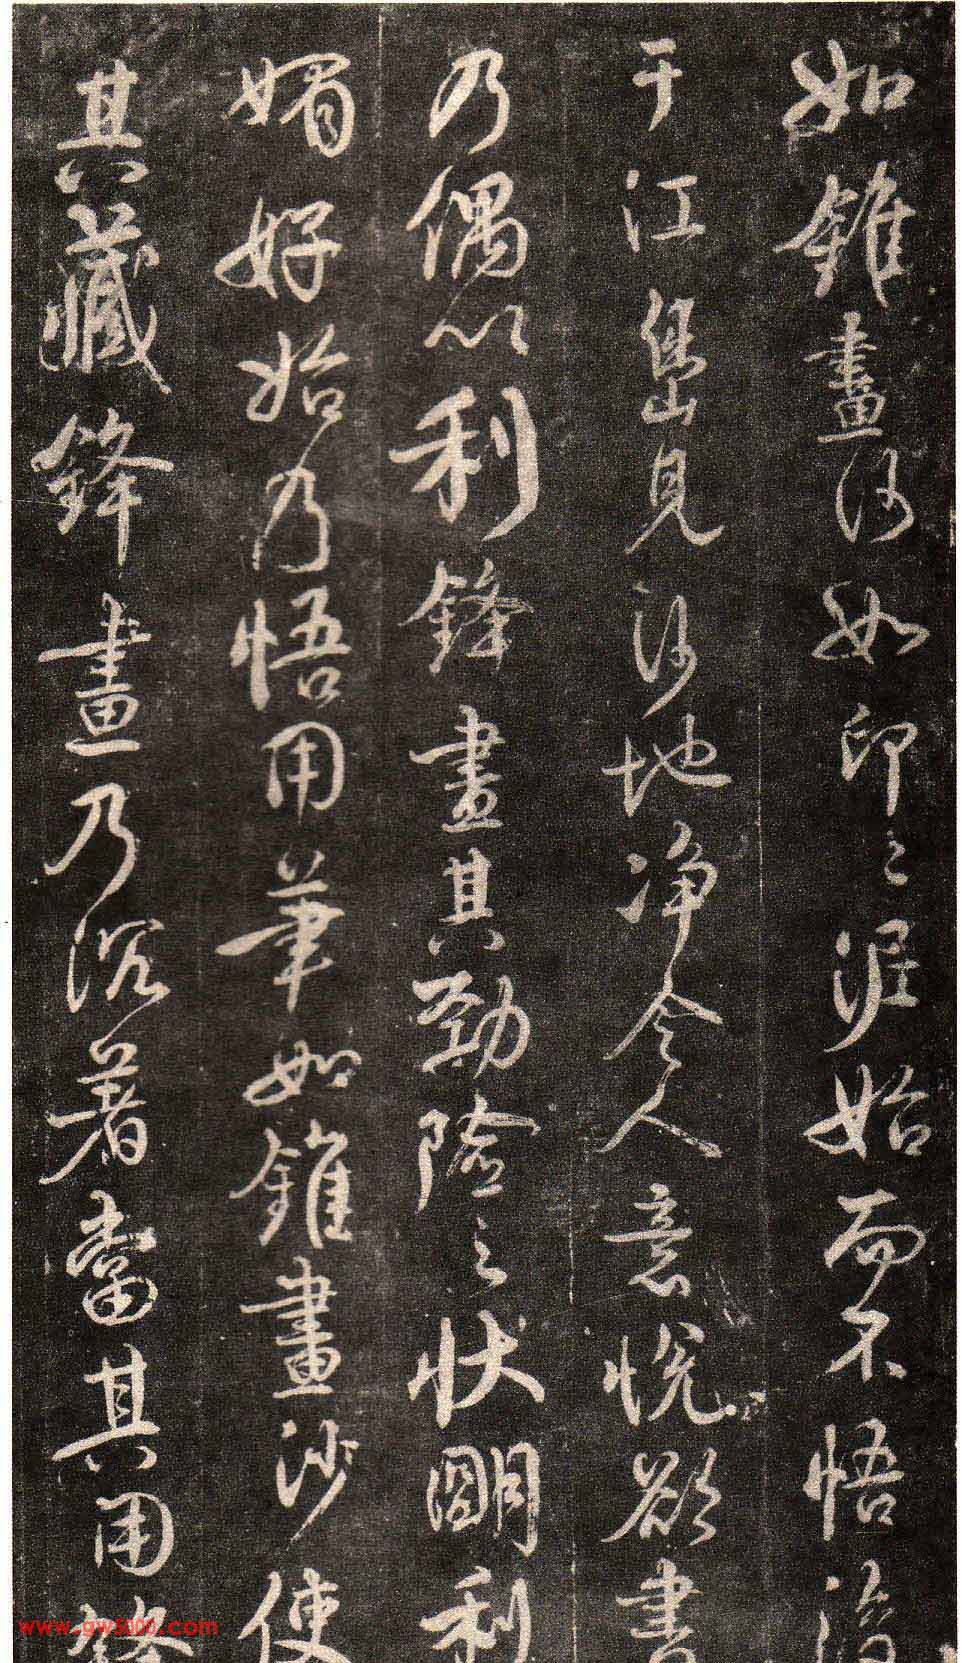 如錐畫沙如印之泥始而不悟後
于江島見沙地净令人意悅欲書
乃偶以利鋒畫其勁險之狀明利
媚好始乃悟用筆如錐畫沙使
其藏鋒畫乃沉著當其用鋒
www.gw5000.com